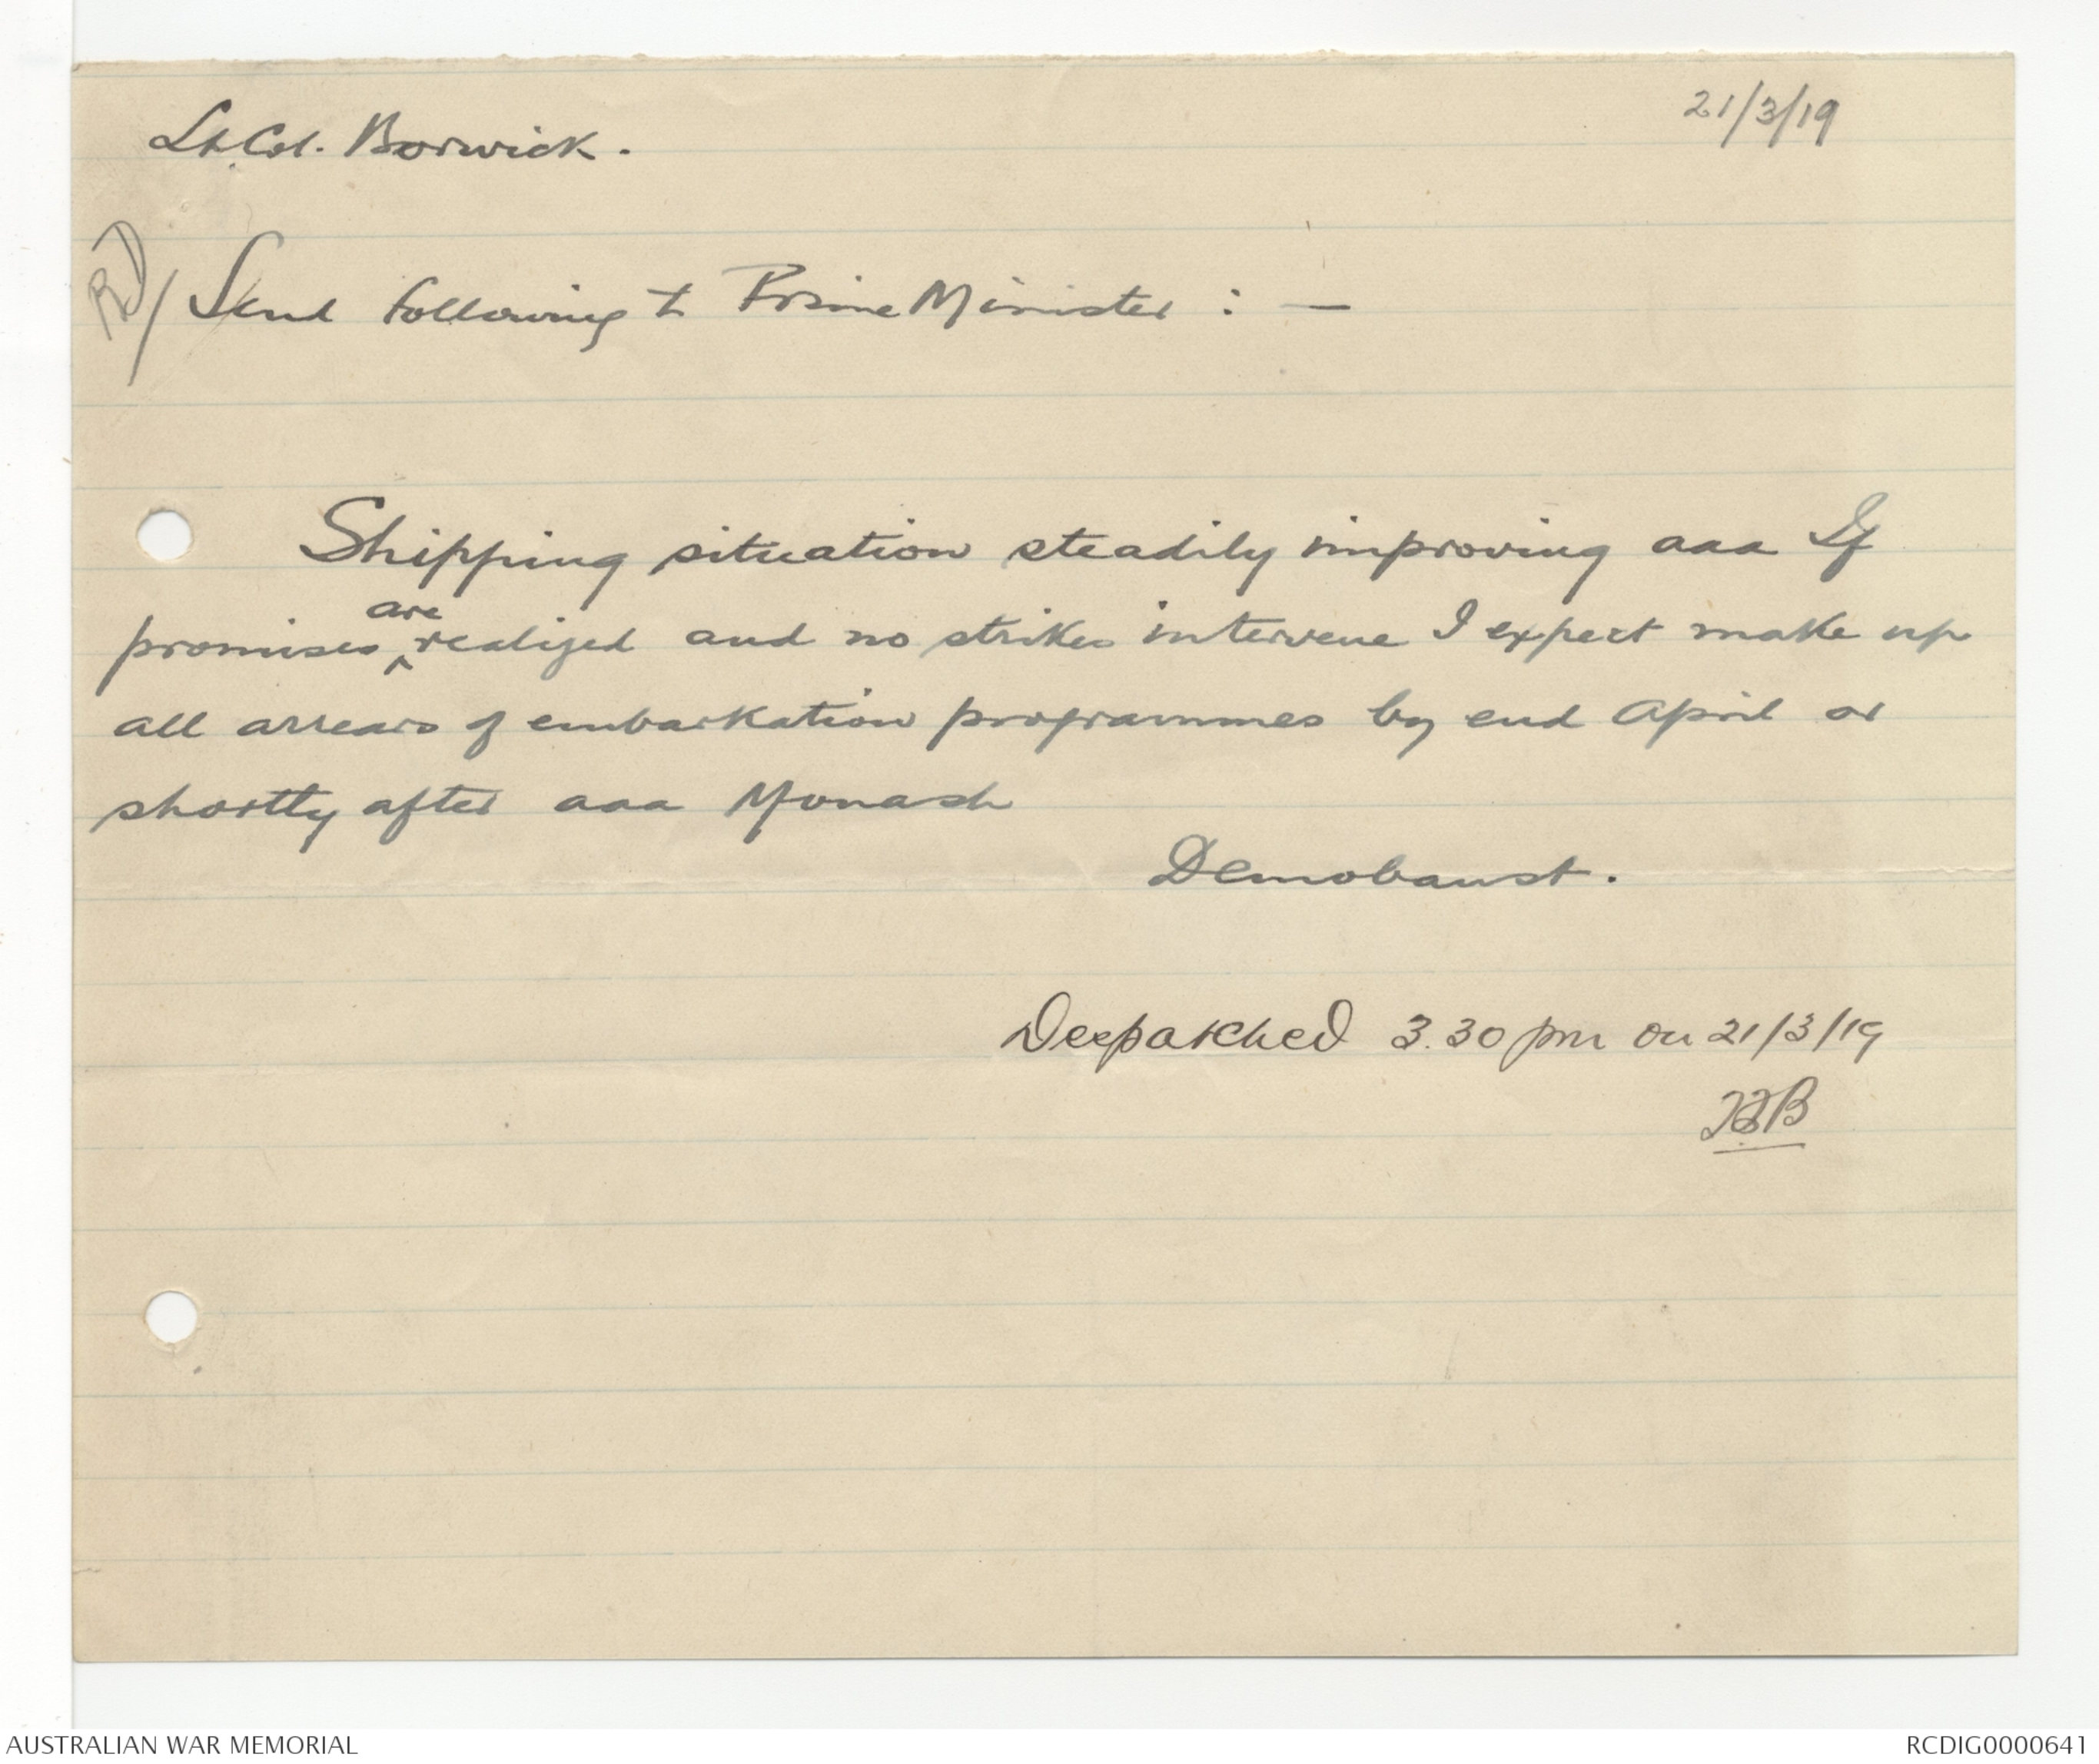 21/3/19
Lt Col. Borwick.
Send following to Prime Minister : —
Shipping situation steadily improving aaa If
promises are realized and no strikes intervene I expect make up
all arrears of embarkation programmes by end April or
shortly after aaa Monash
Demobaust.
Despatched 3.30 pm on 21/3/19
AUSTRALIAN WAR MEMORIAL
RCDIG0000641